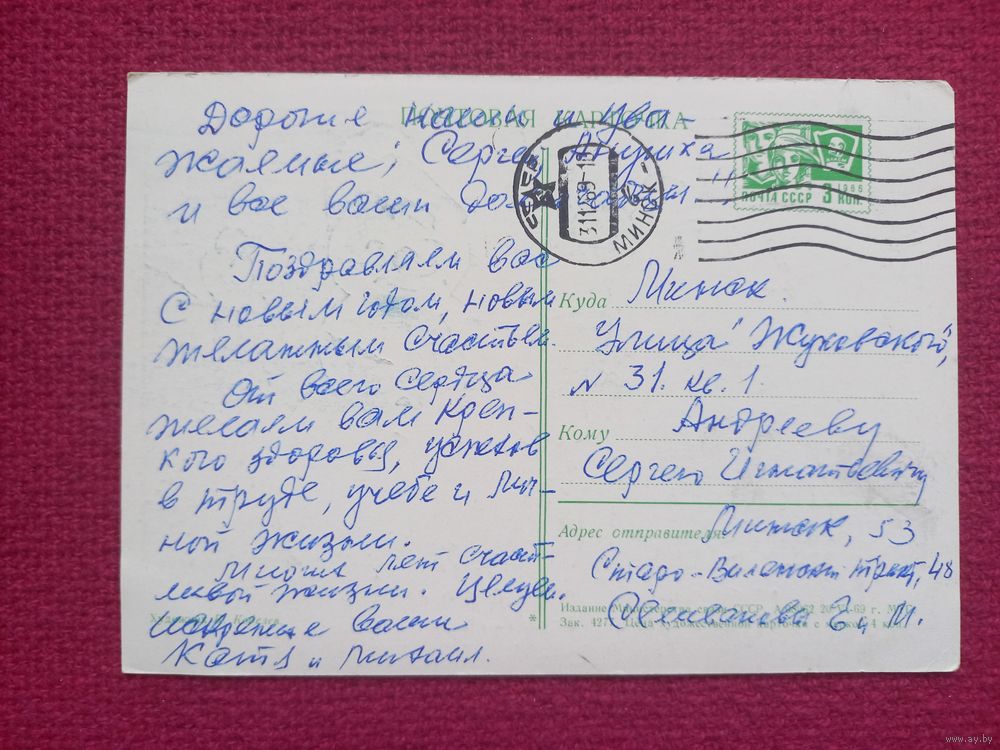 ПОЧТОВАЯ КАРТОЧКА
Дорогие наши и ува-
жаемые, Сергей,
и все ваши
Поздравляем вас
С новым годом, новым
желанным счастьем.
От всего сердца
желаем вам креп-
кого здоровья, успехов
в труде, учебе и лич-
ной жизни.
Много лет счаст-
ливой жизни. Целуем.
искренне ваши
Катя и Михаил.
СССР
МИНСК
ПОЧТА СССР 3 КОП.
1966
Куда Минск.
Улица Жуковского,
№ 31. кв. 1.
Кому Андрееву
Сергею Игнатьевичу
Адрес отправителя: Минск, 53
Старо-Виленский тракт, 48
Е. и М.
Издание Министерства связи СССР.
Зак. Цена художественной карточки с маркой 4 коп.
www.ay.by